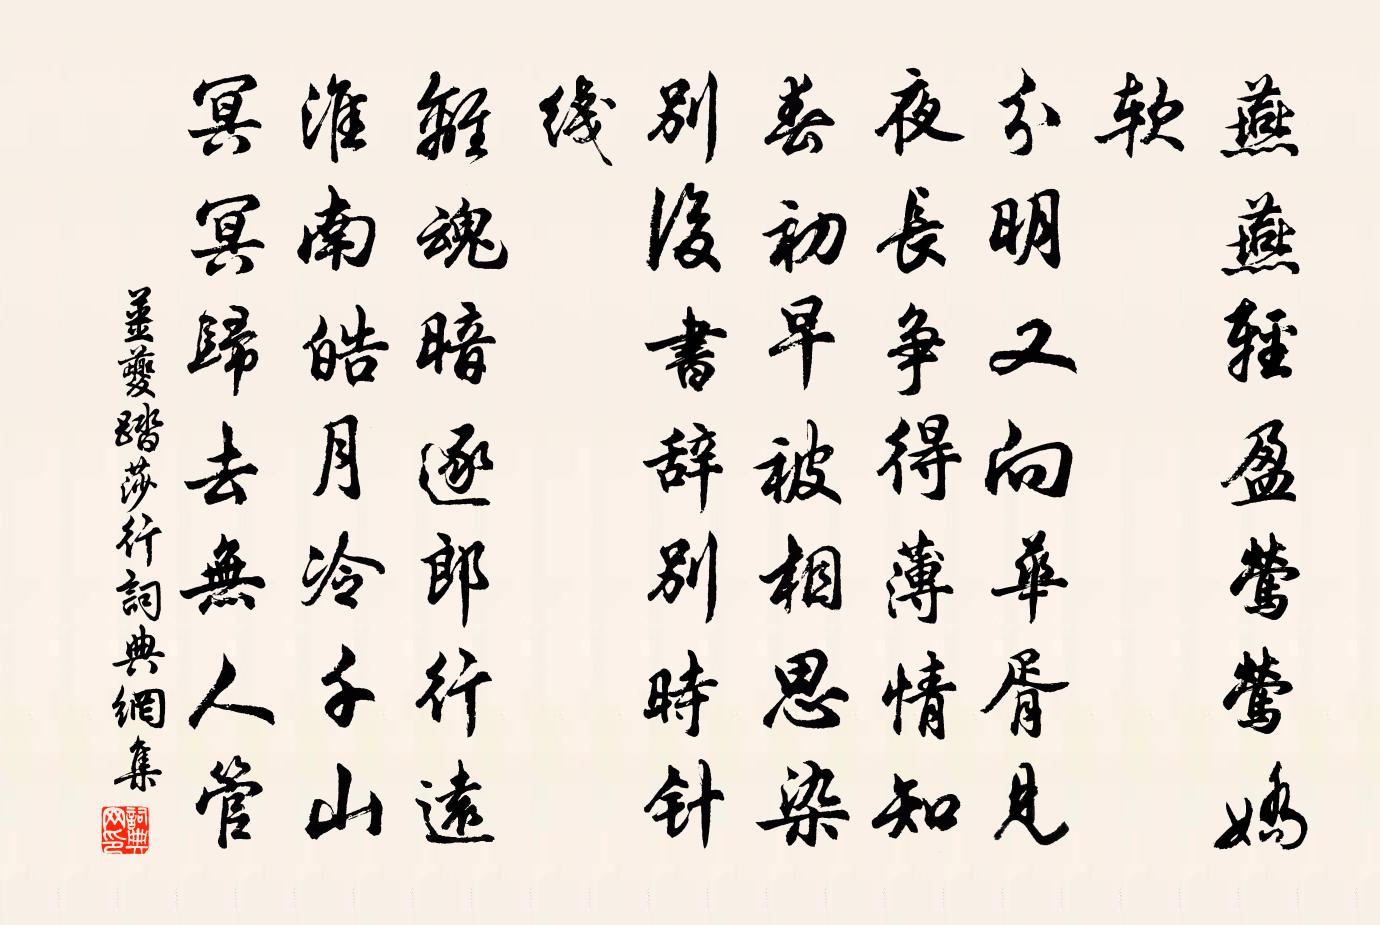 燕燕輕盈鶯鶯嬌
軟
分明又向華胥見
夜長争得薄情知
春初早被相思染
别後書辞别時針
綫
離魂暗逐郎行遠
淮南皓月冷千山
冥冥歸去無人管
薑夔踏莎行詞典網集
詞典网印